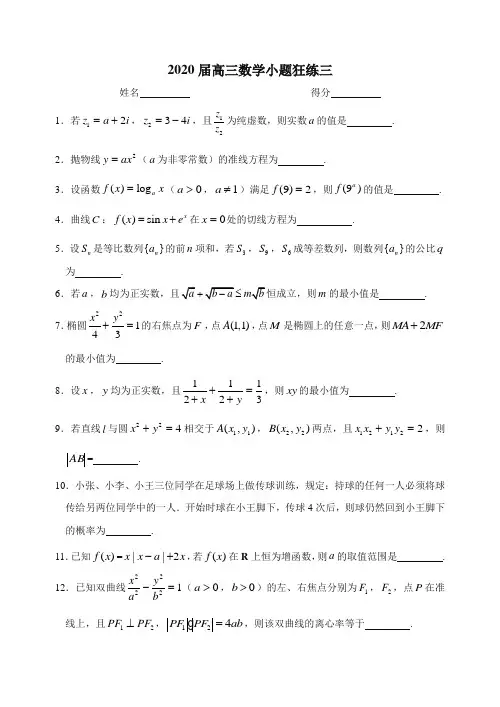 2020 届高三数学小题狂练三
姓名__________ 得分__________
1．若 z₁ = a + 2i，z₂ = 3 − 4i，且 z₁/z₂ 为纯虚数，则实数 a 的值是________．
2．抛物线 y = ax²（a 为非零常数）的准线方程为________．
3．设函数 f(x) = logₐ x（a > 0，a ≠ 1）满足 f(9) = 2，则 f(9ᵃ) 的值是________．
4．曲线 C：f(x) = sin x + eˣ 在 x = 0 处的切线方程为________．
5．设 Sₙ 是等比数列{aₙ}的前 n 项和，若 S₃，S₉，S₆ 成等差数列，则数列{aₙ}的公比 q
为________．
6．若 a，b 均为正实数，且 √a + √(b−a) ≤ m√b 恒成立，则 m 的最小值是________．
7．椭圆 x²/4 + y²/3 = 1 的右焦点为 F，点 A(1,1)，点 M 是椭圆上的任意一点，则 MA + 2MF
的最小值为________．
8．设 x，y 均为正实数，且 1/(2+x) + 1/(2+y) = 1/3，则 xy 的最小值为________．
9．若直线 l 与圆 x² + y² = 4 相交于 A(x₁, y₁)，B(x₂, y₂) 两点，且 x₁x₂ + y₁y₂ = 2，则
|AB| =________．
10．小张、小李、小王三位同学在足球场上做传球训练，规定：持球的任何一人必须将球
传给另两位同学中的一人．开始时球在小王脚下，传球 4 次后，则球仍然回到小王脚下
的概率为________．
11．已知 f(x) = x | x − a | +2x，若 f(x) 在 R 上恒为增函数，则 a 的取值范围是________．
12．已知双曲线 x²/a² − y²/b² = 1（a > 0，b > 0）的左、右焦点分别为 F₁，F₂，点 P 在准
线上，且 PF₁ ⊥ PF₂，|PF₁||PF₂| = 4ab，则该双曲线的离心率等于________．